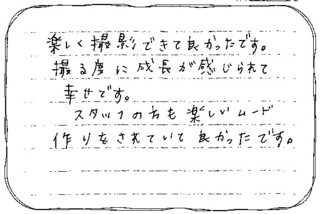 楽しく撮影できて良かったです。
撮る度に成長が感じられて
幸せです。
スタッフの方も楽しいムード
作りをされていて良かったです。